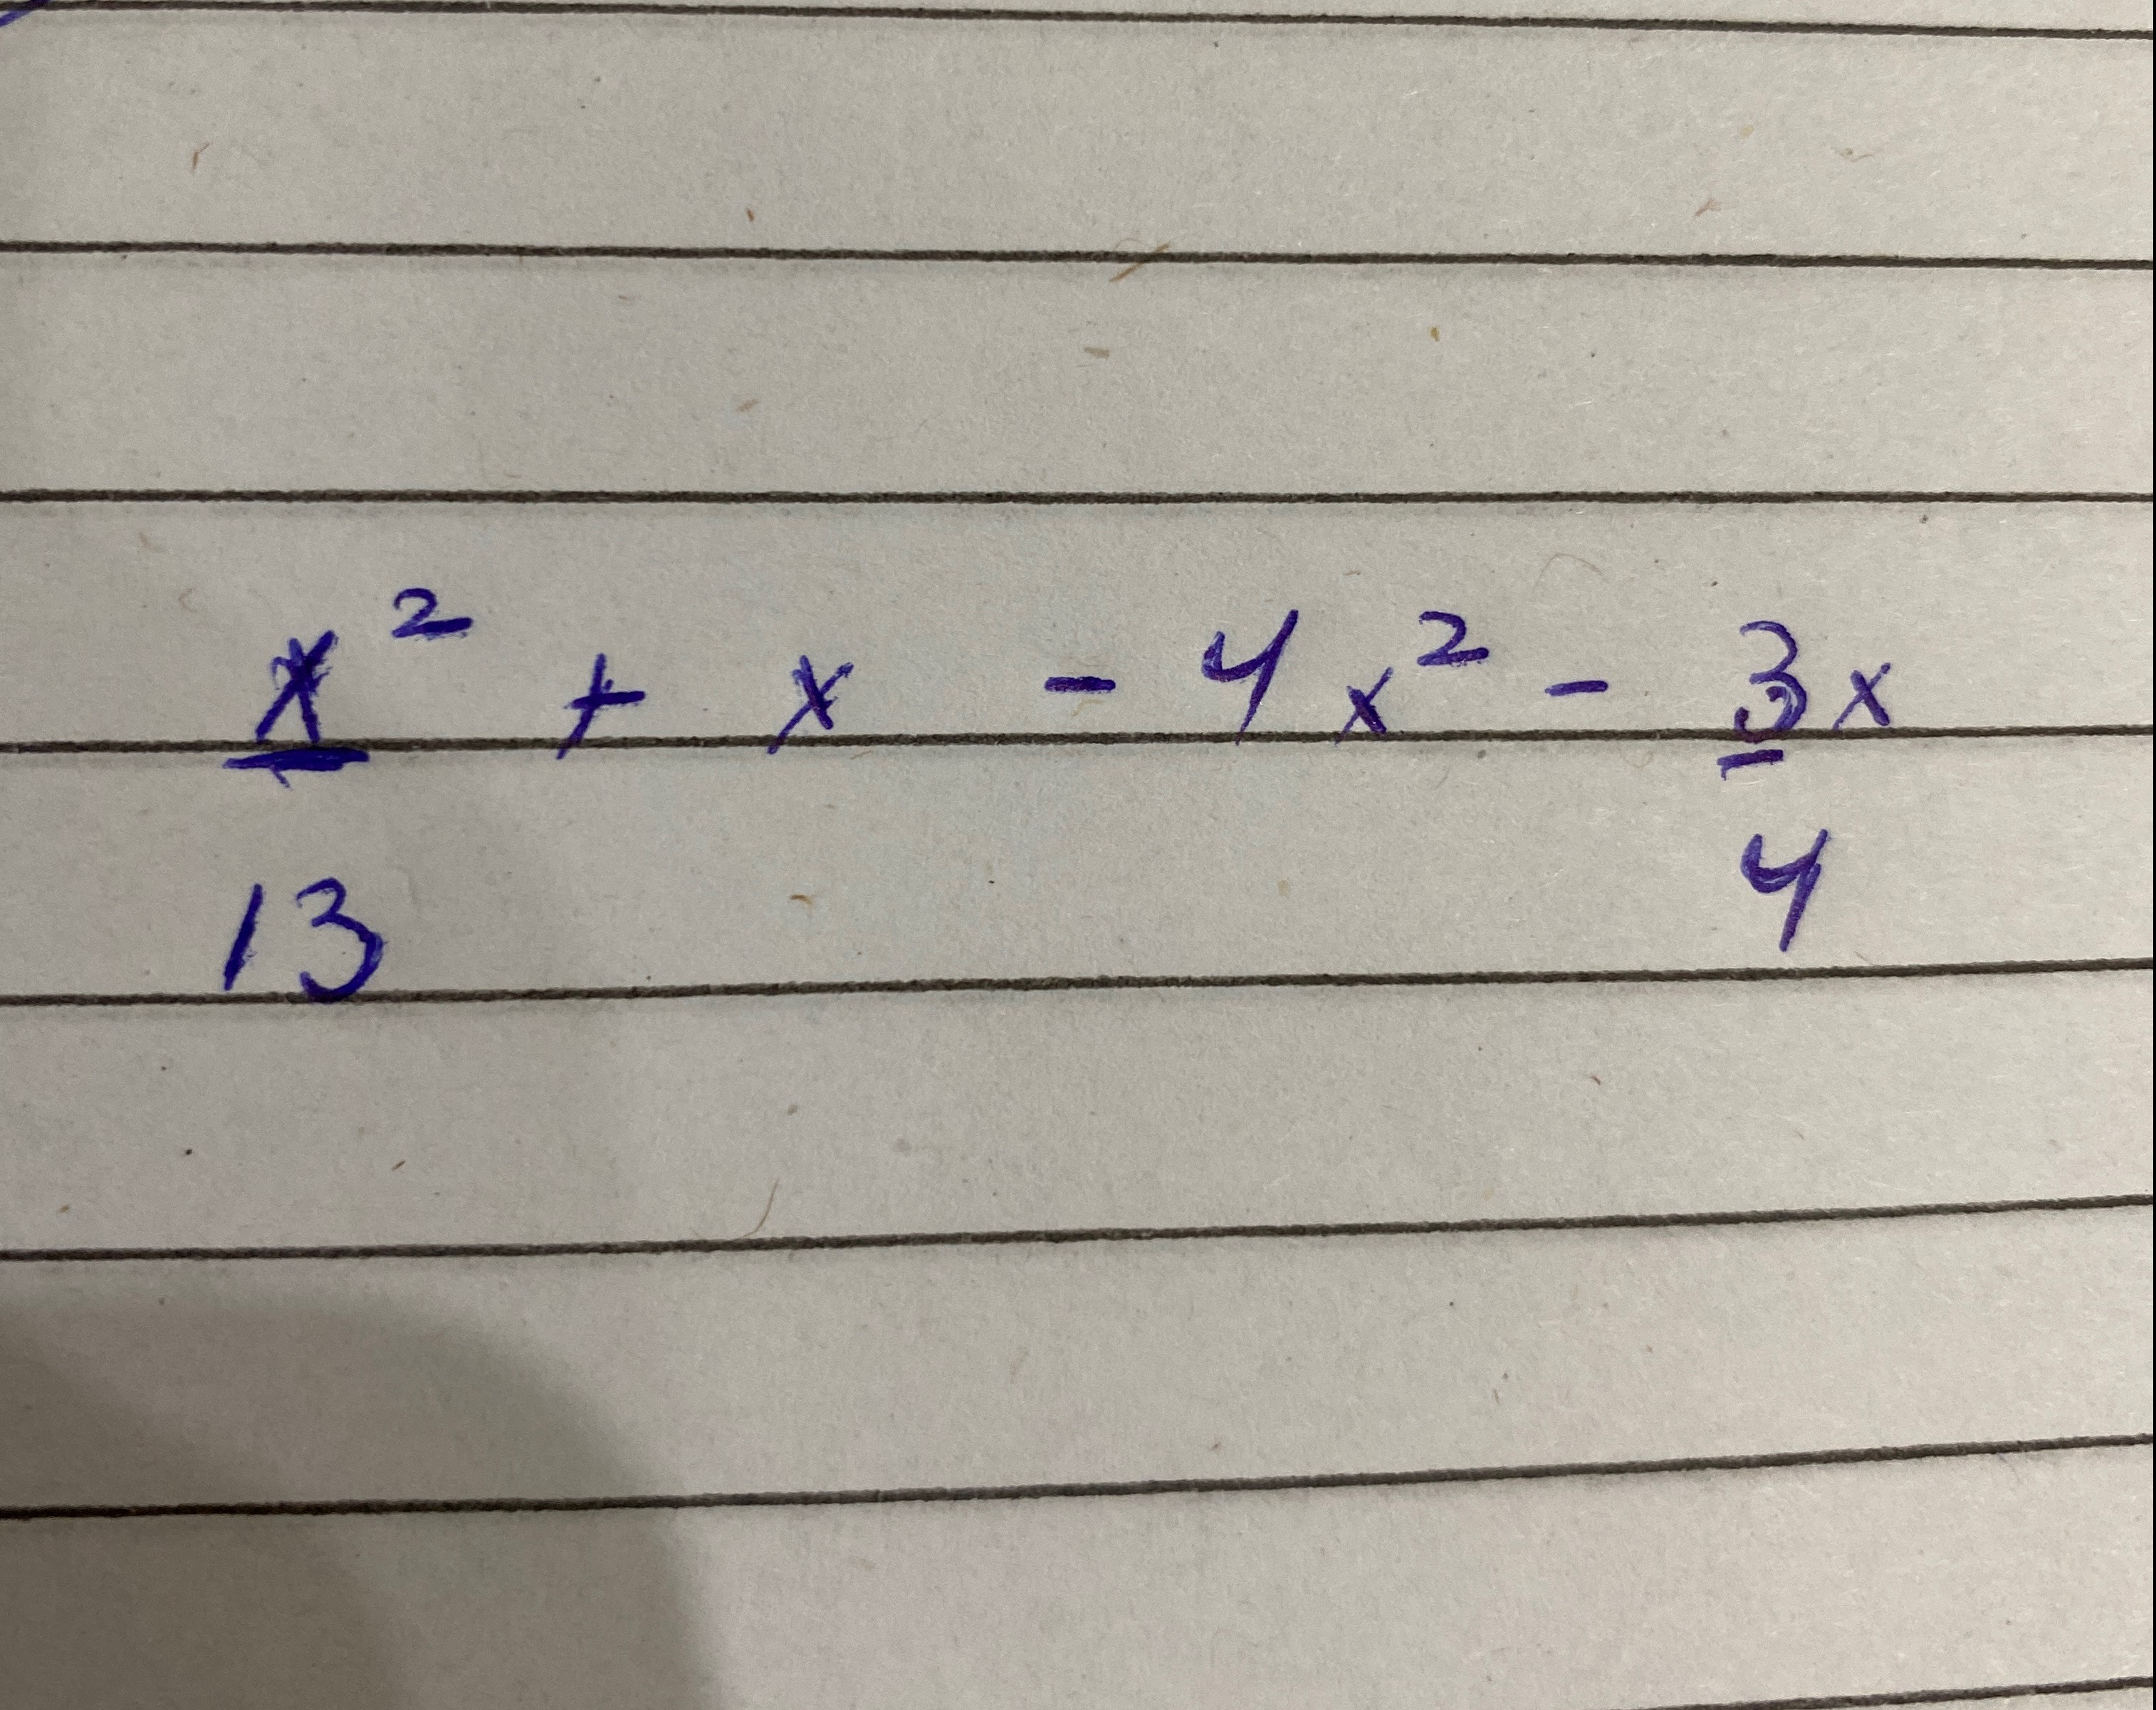 x²/13 + x - 4x² - 3/4 x